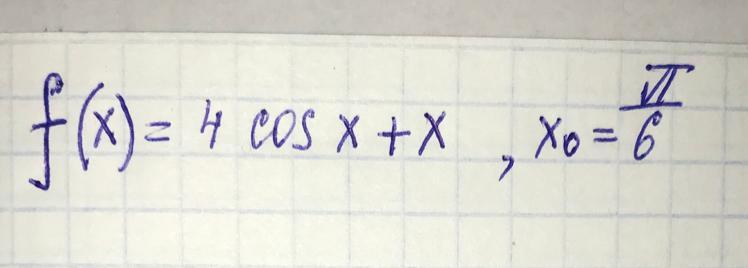 f(x) = 4 cos x + x , x₀ = π/6